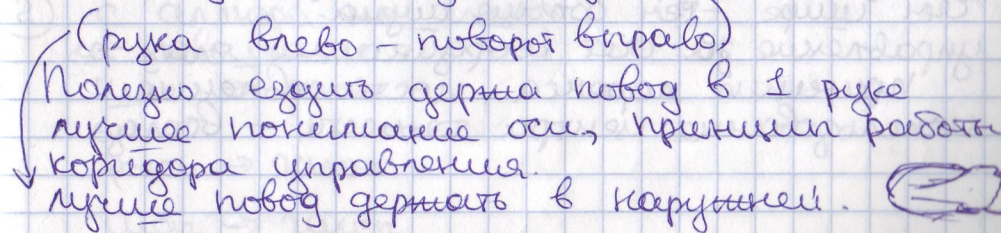 (рука влево – поворот вправо)
Полезно ездить держа повод в 1 руке
лучшее понимание оси, принцип работы
коридора управления.
лучше повод держать в наружней.